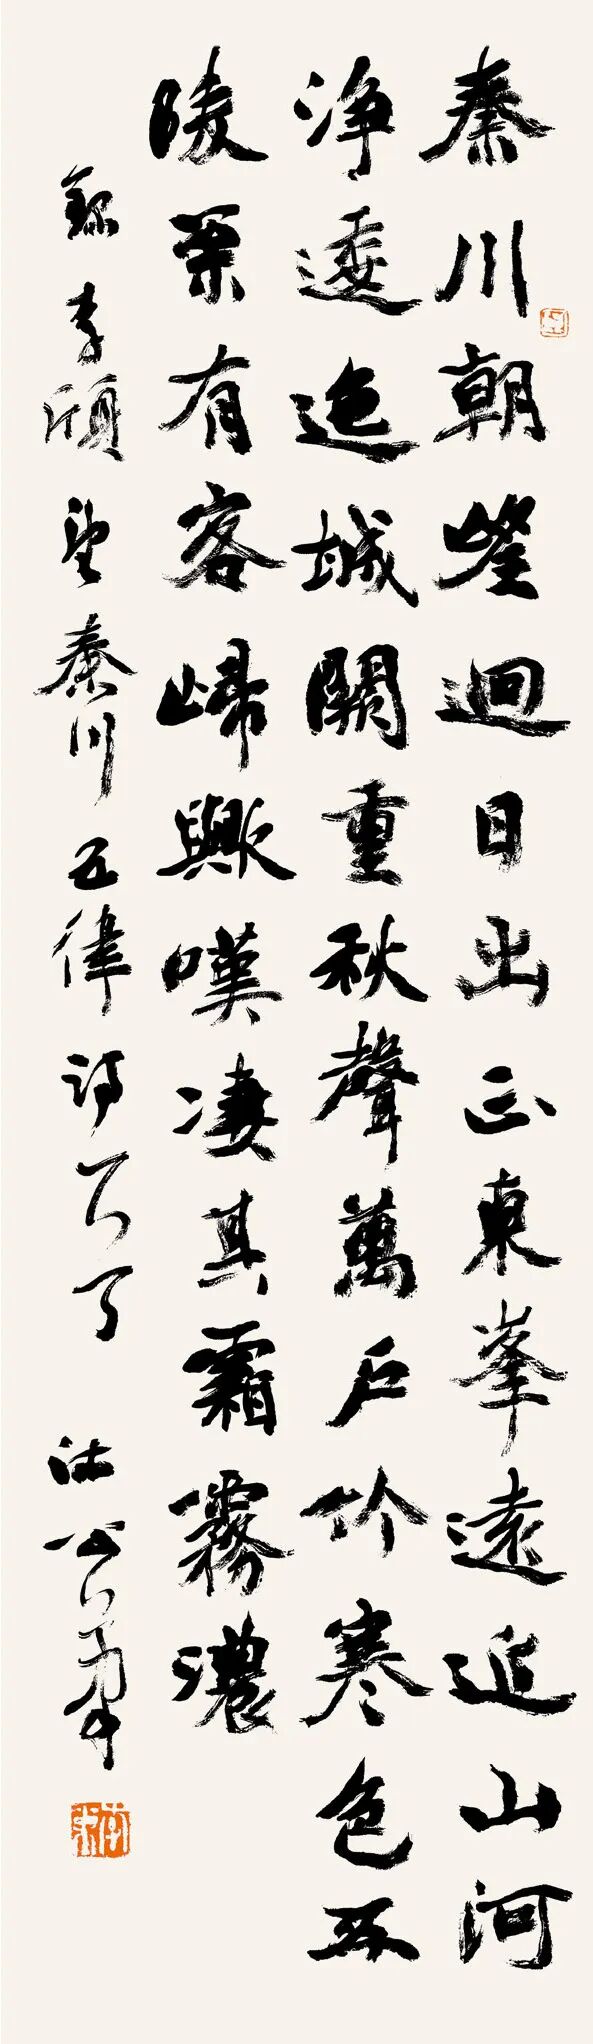 秦川朝望迥日出正東峯遠近山河
淨逶迤城闕重秋聲萬戶竹寒色五
陵有客歸歟嘆凄其霜霧濃
錄李頎望秦川五律詩